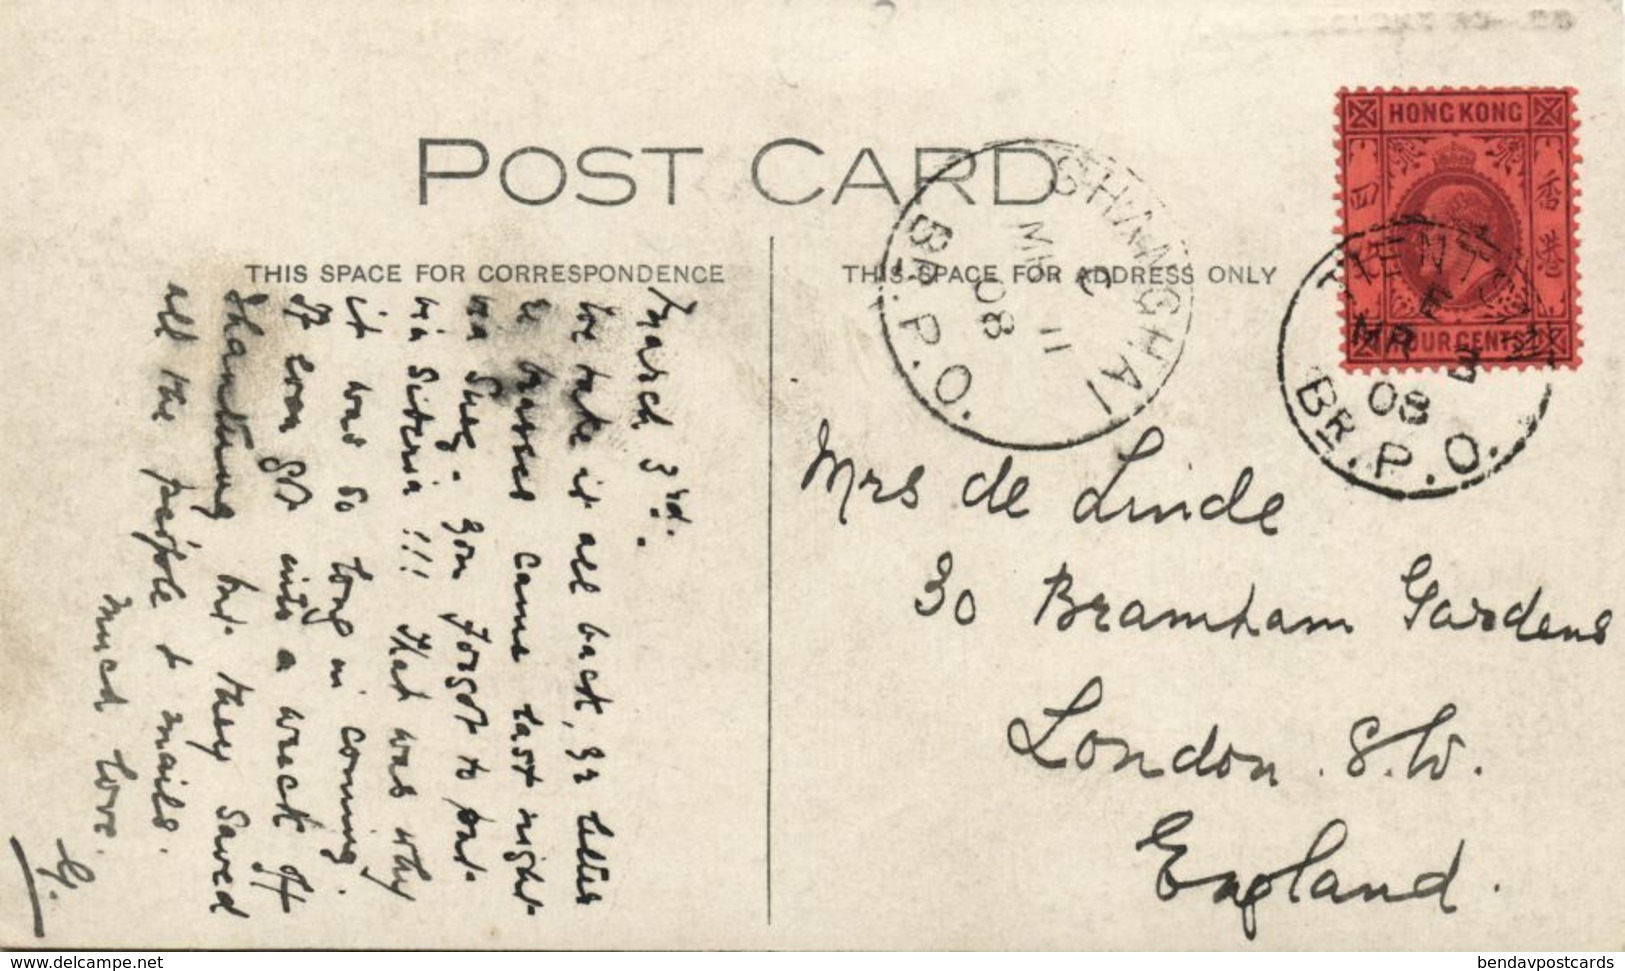 POST CARD
THIS SPACE FOR CORRESPONDENCE
THIS SPACE FOR ADDRESS ONLY
HONG KONG
四
香港
FOUR CENTS
TIENTSIN
E
MR 3
08
BR. P. O.
SHANGHAI
MR 11
08
BR. P. O.
March 3rd.
We take it all back, yr letter
came last night
via Suez. You forgot to put
via Siberia!!! That was why
it was so long in coming.
It even got into a wreck off
Shantung but they saved
all the people & mails.
Much love.
G.
Mrs de Linde
30 Bramham Gardens
London. S.W.
England.
www.delcampe.net
bendavpostcards